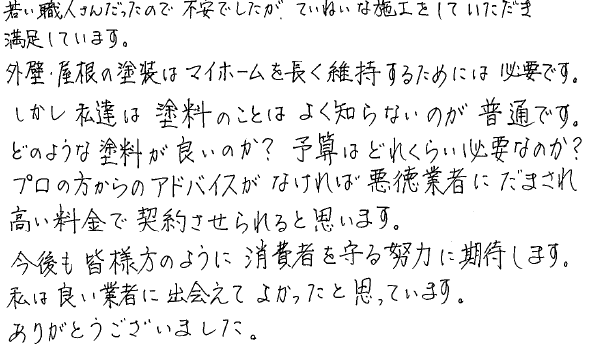 若い職人さんだったので不安でしたが、ていねいな施工をしていただき
満足しています。
外壁・屋根の塗装はマイホームを長く維持するためには必要です。
しかし私達は塗料のことはよく知らないのが普通です。
どのような塗料が良いのか？予算はどれくらい必要なのか？
プロの方からのアドバイスがなければ悪徳業者にだまされ
高い料金で契約させられると思います。
今後も皆様方のように消費者を守る努力に期待します。
私は良い業者に出会えてよかったと思っています。
ありがとうございました。